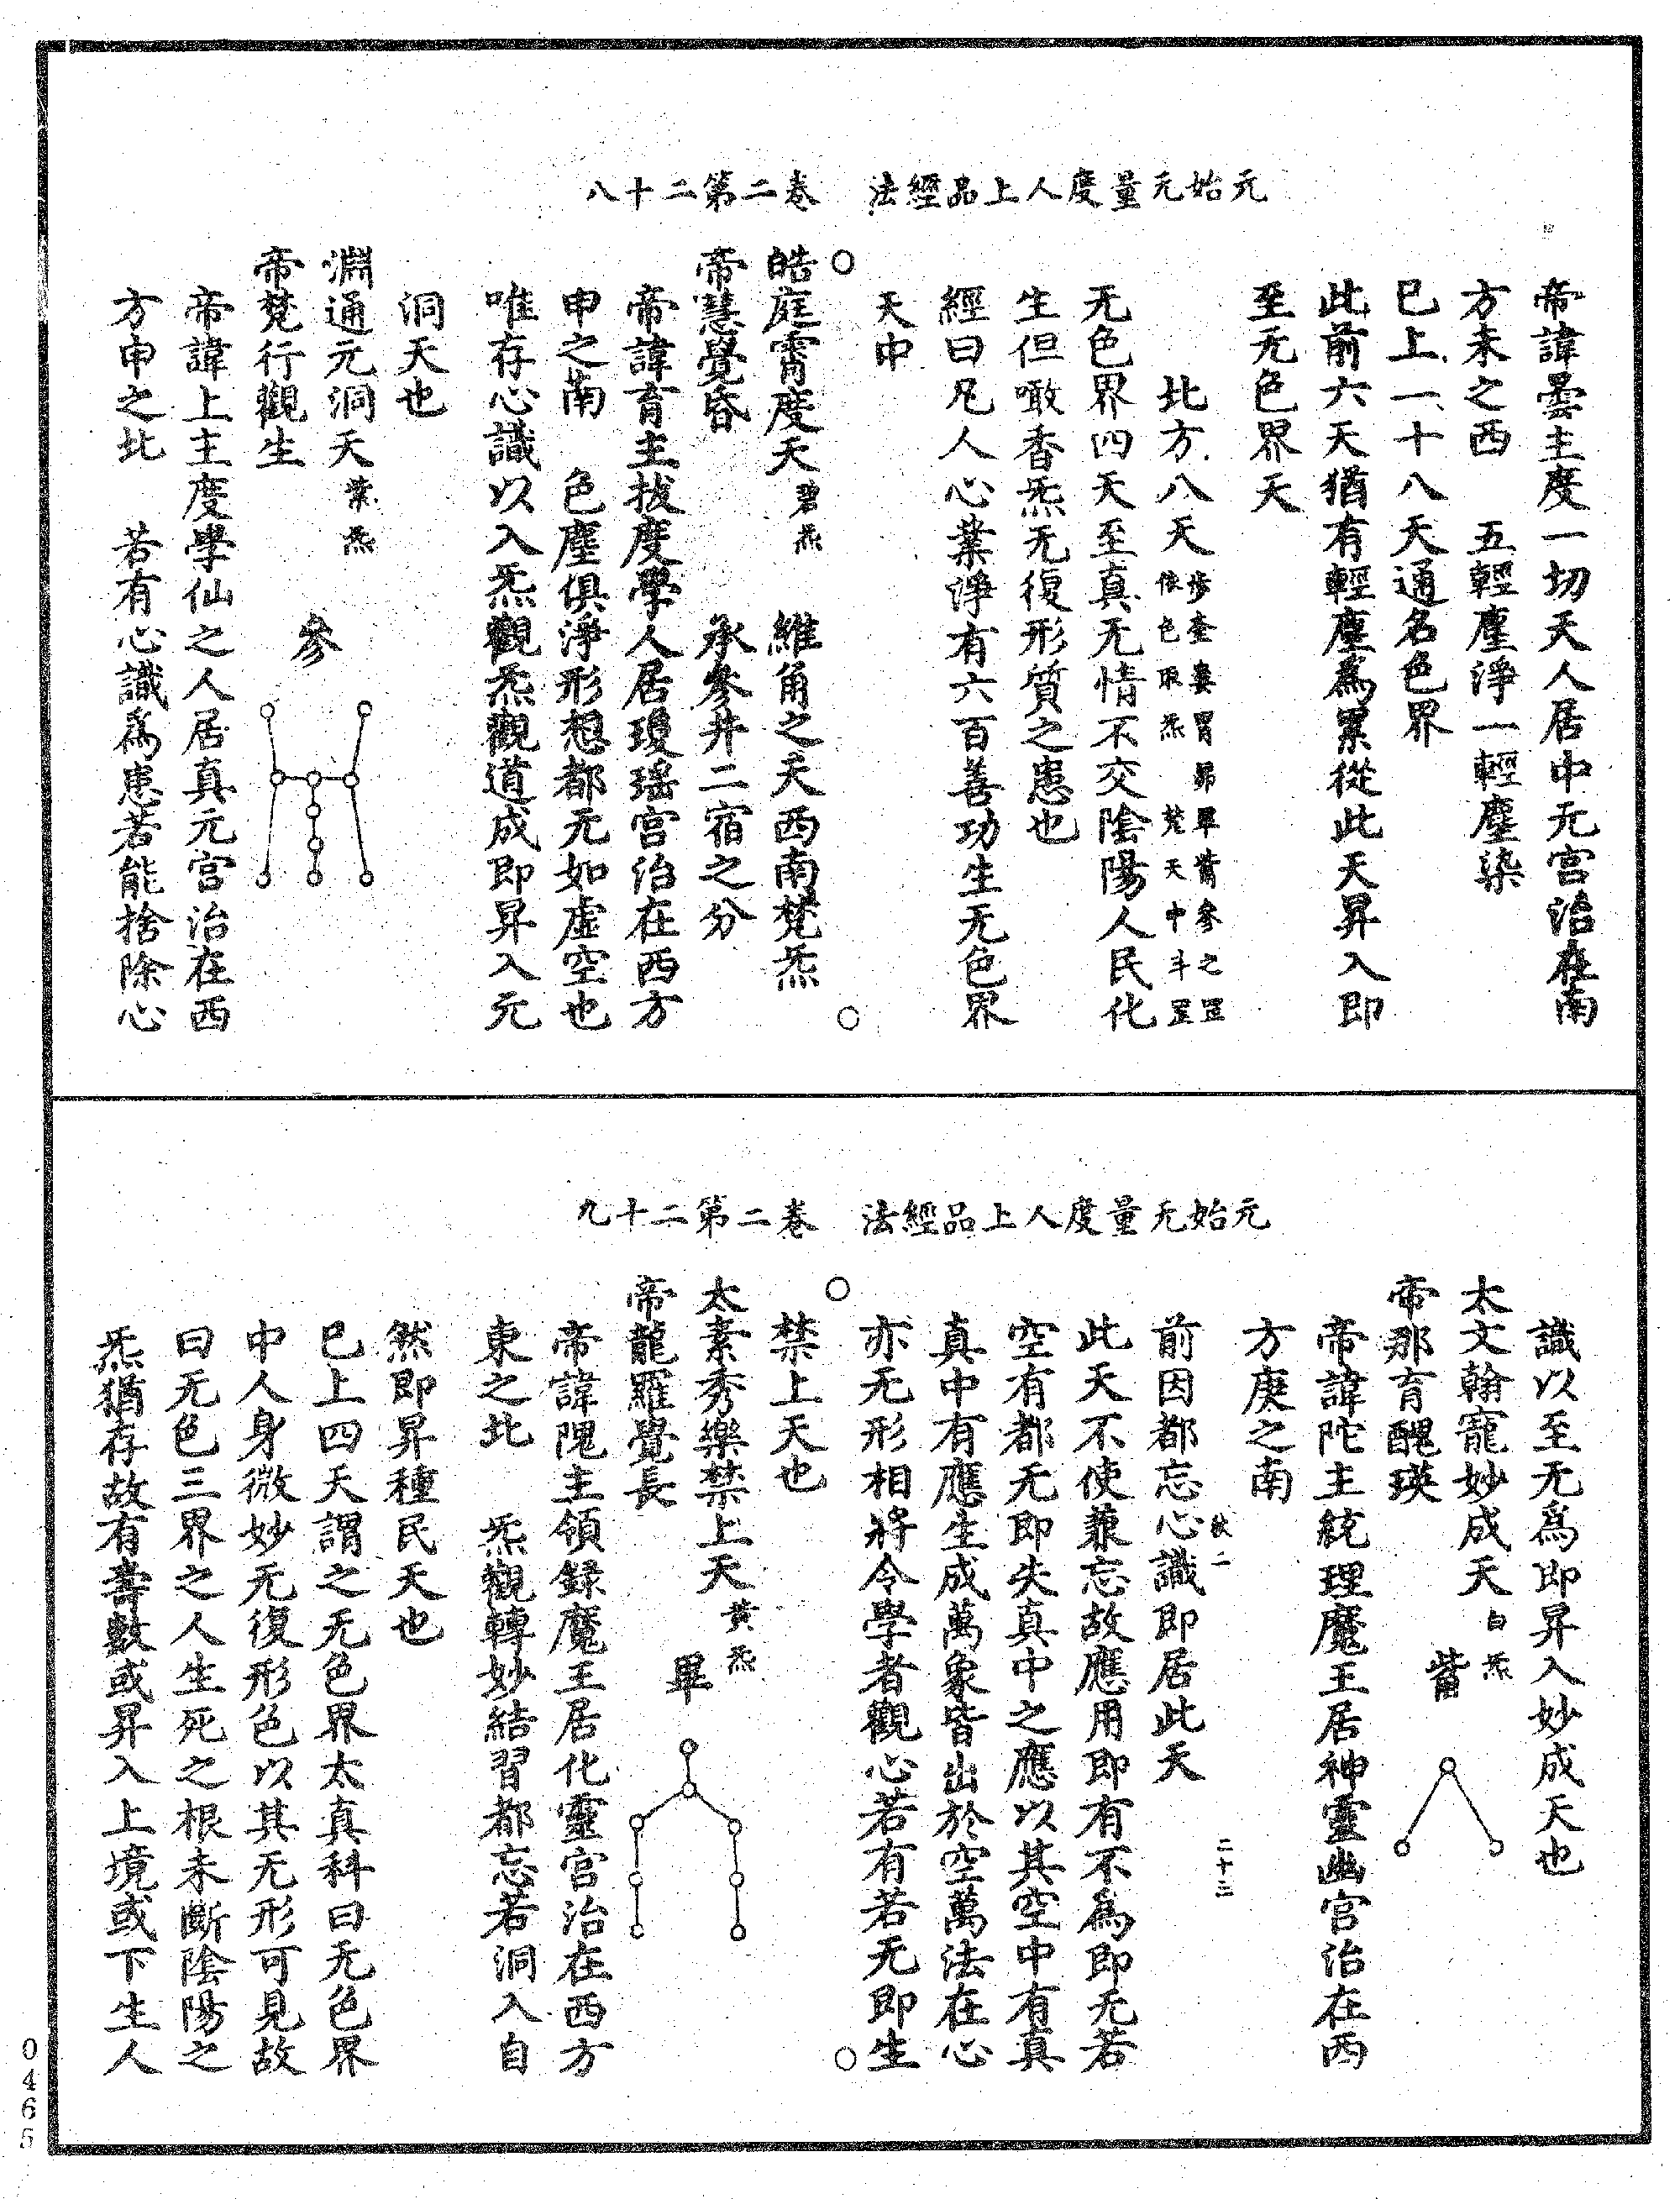 元始无量度人上品經法　卷二第二十八
帝諱曇主度一切天人居中无宫治在南
方未之西　五輕塵淨一輕塵染
巳上一十八天通名色界
此前六天猶有輕塵爲累從此天昇入即
至无色界天
北方八天步奎婁胃昴畢觜參之罡
依色取炁　梵天中斗罡
无色界四天至真无情不交陰陽人民化
生但噉香炁无復形質之患也
經曰凡人心業淨有六百善功生无色界
天中
○　○
皓庭霄度天碧炁　維角之天西南梵炁
帝慧覺昏　承參井二宿之分
帝諱育主拔度學人居瓊瑶宫治在西方
申之南　色塵俱淨形想都无如虛空也
唯存心識以入炁觀炁觀道成即昇入元
洞天也
淵通元洞天紫炁　參
帝梵行觀生
帝諱上主度學仙之人居真元宫治在西
方申之北　若有心識爲患若能捨除心
元始无量度人上品經法　卷二第二十九
識以至无爲即昇入妙成天也
太文翰寵妙成天白炁　觜
帝那育醜瑛
帝諱陀主統理魔王居神靈幽宫治在西
方庚之南
二十三
前因都忘心識即居此天
此天不使兼忘故應用即有不爲即无若
空有都无即失真中之應以其空中有真
真中有應生成萬象皆出於空萬法在心
亦无形相將令學者觀心若有若无即生
○　○
禁上天也
太素秀樂禁上天黄炁　畢
帝龍羅覺長
帝諱隗主領録魔王居化靈宫治在西方
東之北　炁觀轉妙結習都忘若洞入自
然即昇種民天也
巳上四天謂之无色界太真科曰无色界
中人身微妙无復形色以其无形可見故
曰无色三界之人生死之根未斷陰陽之
炁猶存故有壽數或昇入上境或下生人
0465